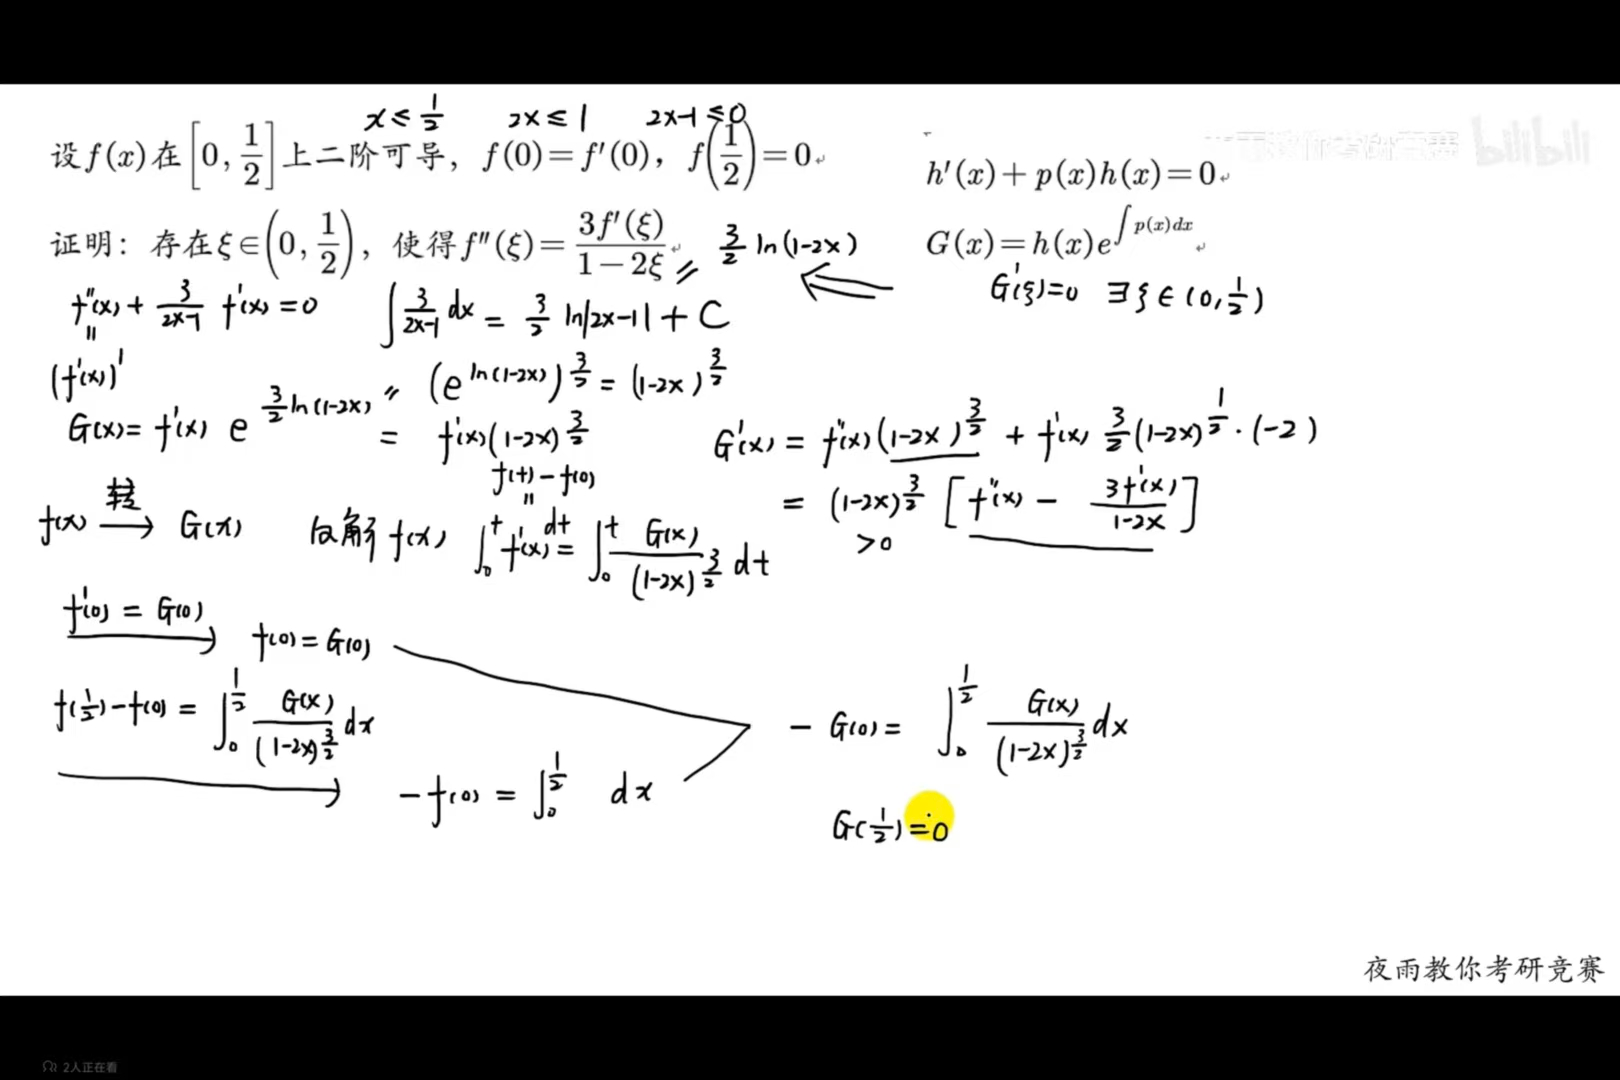 x ≤ 1/2   2x ≤ 1   2x-1 ≤ 0
设 f(x) 在 [0, 1/2] 上二阶可导，f(0)=f′(0)，f(1/2)=0
证明：存在 ξ∈(0, 1/2)，使得 f″(ξ)= 3f′(ξ)/(1−2ξ)
bilibili
h′(x)+p(x)h(x)=0
G(x)=h(x)e^{∫p(x)dx}
G′(ξ)=0 ∃ξ∈(0, 1/2)
= 3/2 ln(1-2x)
f″(x) + 3/(2x-1) f′(x) = 0   ∫ 3/(2x-1) dx = 3/2 ln|2x-1| + C
=
(f′(x))′   = (e^{ln(1-2x)})^{3/2} = (1-2x)^{3/2}
G(x) = f′(x) e^{3/2 ln(1-2x)} = f′(x)(1-2x)^{3/2}
G′(x) = f″(x)(1-2x)^{3/2} + f′(x) 3/2 (1-2x)^{1/2}·(-2)
= (1-2x)^{3/2} [f″(x) − 3f′(x)/(1-2x)]
>0
f(t)-f(0)
=
转
f(x) → G(x)   反解 f(x)   ∫_0^t f′(x) dt = ∫_0^t G(x)/(1-2x)^{3/2} dt
f′(0) = G(0)
f(0) = G(0)
f(1/2) - f(0) = ∫_0^{1/2} G(x)/(1-2x)^{3/2} dx
- f(0) = ∫_0^{1/2} dx
- G(0) = ∫_0^{1/2} G(x)/(1-2x)^{3/2} dx
G(1/2) = 0
夜雨教你考研竞赛
2人正在看